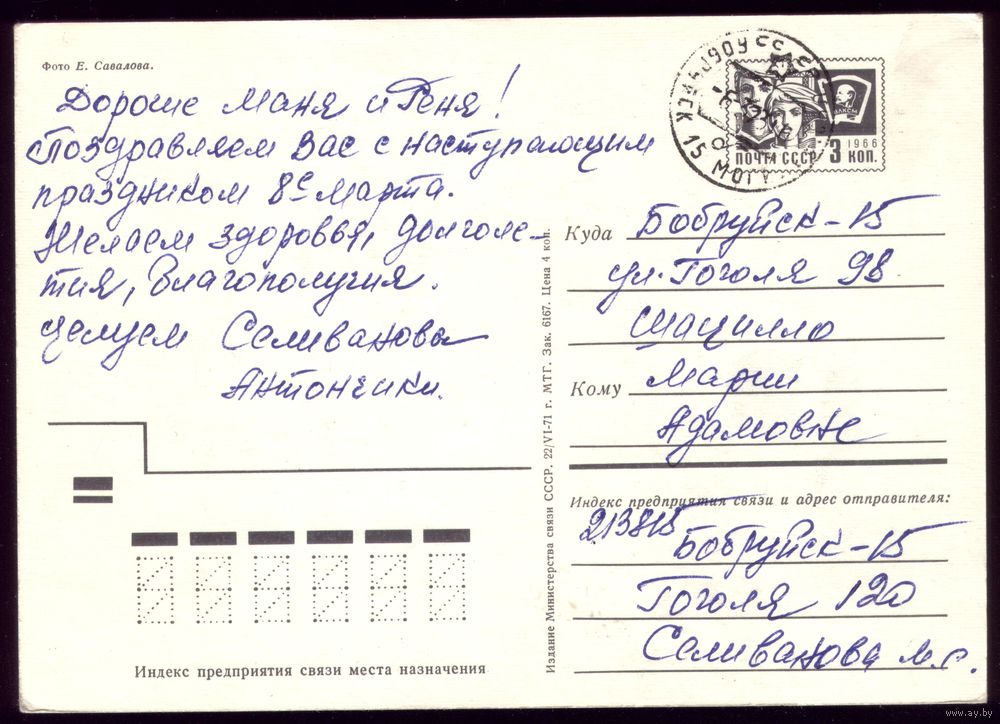 Фото Е. Савалова.
Дорогие Маня и Геня!
Поздравляем Вас с наступающим
праздником 8е Марта.
Желаем здоровья, долголе-
тия, благополучия.
целуем Селивановы
Антончики.
ПОЧТА СССР
1966
3 КОП.
ВЛКСМ
Куда Бобруйск-15
ул. Гоголя 98
Шацилло
Кому Марии
Адамовне
Индекс предприятия связи и адрес отправителя:
213815
Бобруйск-15
Гоголя 120
Селиванова М.С.
Издание Министерства связи СССР. 22/VI-71 г. МТГ. Зак. 6167. Цена 4 коп.
Индекс предприятия связи места назначения
www.ay.by